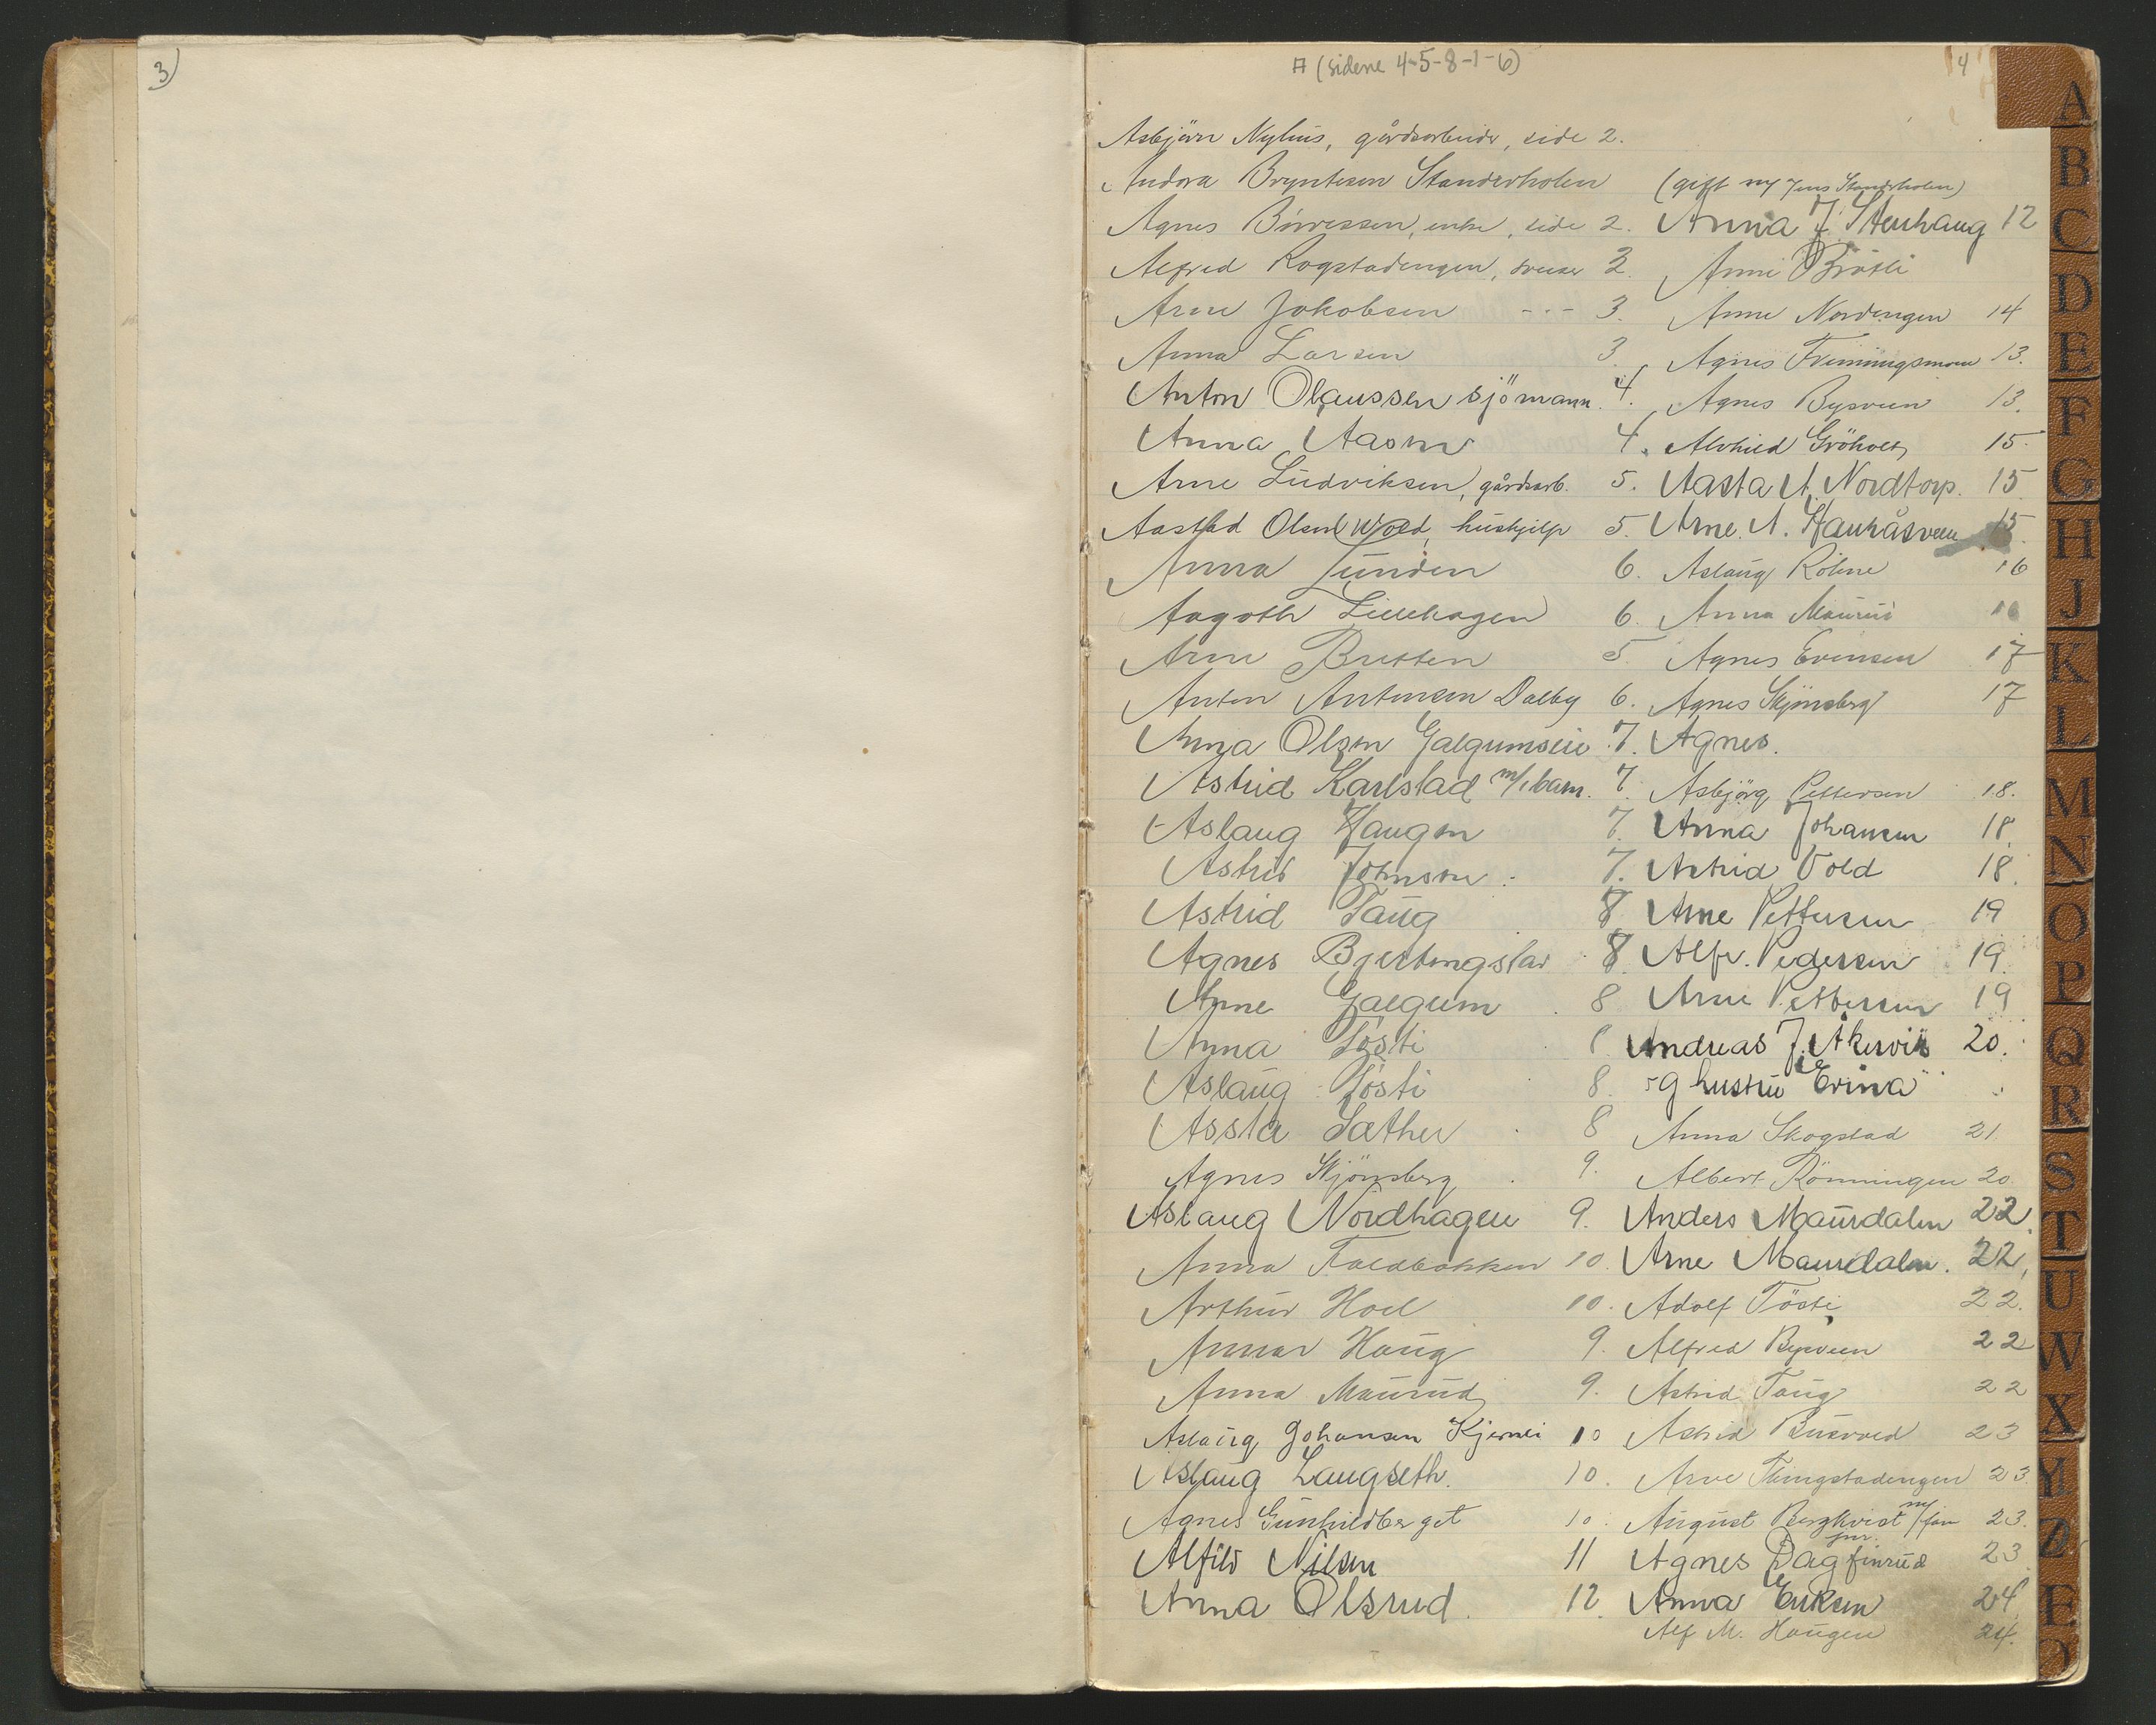 3)
A (sidene 4-5-8-1-6)
4
Asbjörn Nyhus, gårdsarbeider, side 2.
Andora Bryntesen Standerholen (gift m/ Jens Standerholen)
Agnes Börresen, enke, side 2.
Alfred Rogstadengen, sveiser 2.
Arne Jakobsen --- 3.
Anna Larsen 3.
Anton Olaussen sjömann. 4.
Anna Aasen 4.
Arne Ludviksen, gårdsarb. 5.
Aasthd Olsen Wold, hushjelp 5.
Anna Lunden 6.
Aagoth Lillehagen 6.
Arne Bretten 5
Anton Antonsen Dalby 6.
Anna Olsen Galgumseie 7.
Astrid Karlstad m/1 barn. 7.
Aslaug Haugen 7.
Astrid Johnson 7.
Astrid Taug 8
Agnes Bjertongslav 8
Anne Galgum 8
Anna Tösti 8
Aslaug Tösti 8
Assta Sæther 8
Agnes Skjönsberg 9.
Aslaug Nordhagen 9.
Anna Foldbakken 10.
Arthur Hoel 10.
Annar Haug 9.
Anna Maurud 9.
Aslaug Johansen Kjernli 10
Aslaug Langseth. 10.
Agnes Gunhildberget 10.
Alfild Nilsen 11
Anna Olsrud. 12.
Anna J. Stenhaug 12
Anni Bråtli
Anne Nordengen 14
Agnes 13.
Agnes Bysveen 13.
Alvhild Gröholt 15.
Aasta A. Nordtorp. 15.
Arne. A. Haukåsveen 15.
Aslaug Röhne 16
Anna Maurud 16
Agnes Evensen 17
Agnes Skjönsberg 17
Agnes.
Asbjörg Pettersen 18.
Anna Johansen 18.
Astrid Vold 18.
Arne Pettersen 19
Alfr. Pedersen 19.
Arne Pettersen 19
Andreas J. Åkervik 20.
og hustru Erina "
Anna Skogstad 21.
Albert Rönningen 20
Anders Maurdalen 22.
Arne Maurdalen. 22.
Adolf Tösti 22.
Alfred Bysveen 22
Astrid Taug 22
Astrid Busvold 23
Arve Tingstadengen 23.
August Bergkvist m/fam 23.
jnr.
Agnes Dagfinrud 23
Anna Eriksen 24.
Alf M. Haugen 24.
A
B
C
D
E
F
G
H
J
K
L
M
N
O
P
Q
R
S
T
U
W
X
Y
Z
Æ
Ö